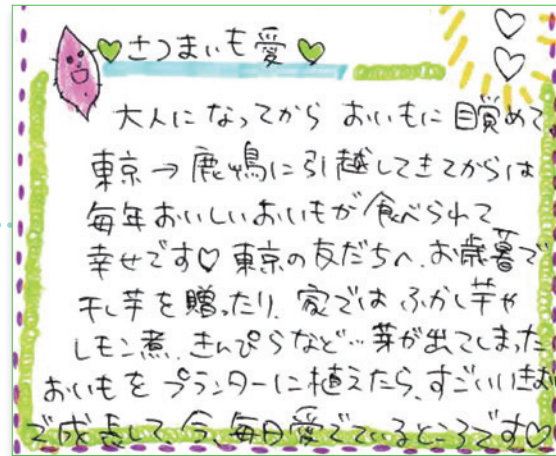 さつまいも愛
大人になってから おいもに目覚めて
東京→鹿嶋に引越してきてからは
毎年おいしいおいもが食べられて
幸せです♡ 東京の友だちへ、お歳暮で
干し芋を贈ったり、家ではふかし芋や
レモン煮、きんぴらなど…芽が出てしまった
おいもをプランターに植えたら、すごいいきおい
で成長して、今、毎日愛でているところです♡